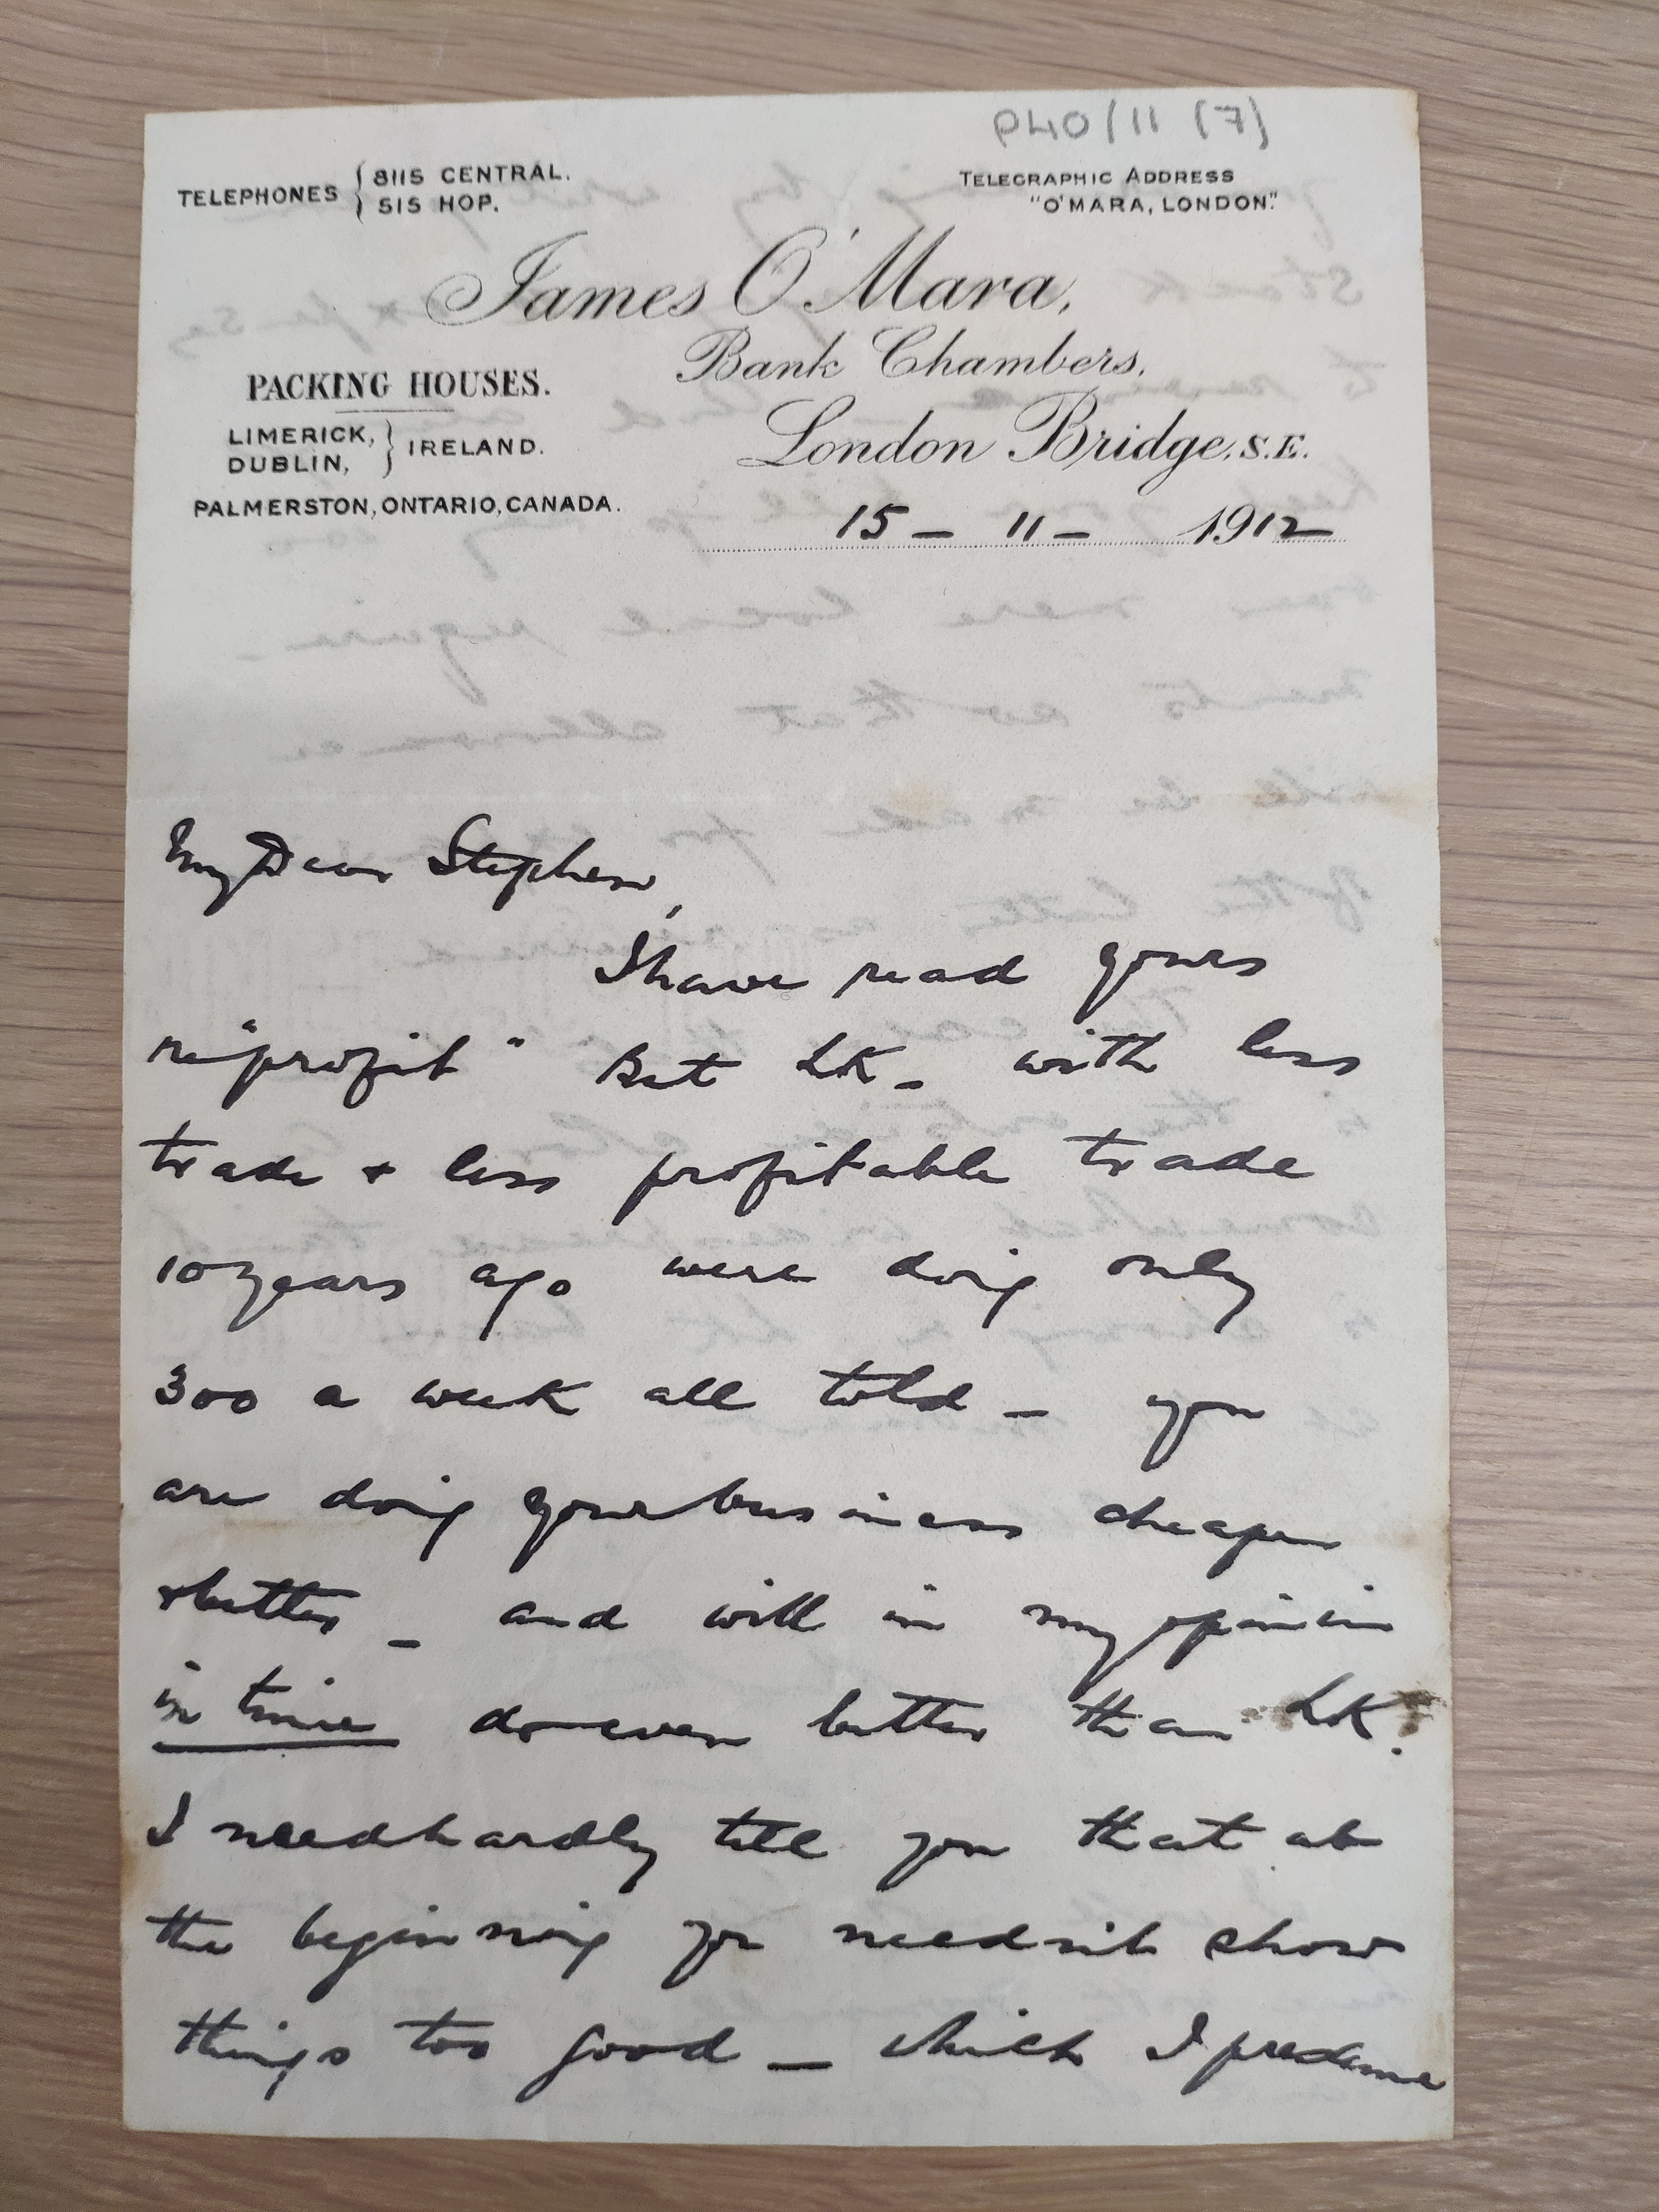 P40/11 (7)
TELEPHONES { 8115 CENTRAL.
515 HOP.
TELEGRAPHIC ADDRESS
"O'MARA, LONDON."
James O'Mara,
Bank Chambers,
London Bridge, S.E.
PACKING HOUSES.
LIMERICK,
DUBLIN, } IRELAND.
PALMERSTON, ONTARIO, CANADA.
15 - 11 - 1912
My Dear Stephen,
I have read yours
re "profit" But LK - with less
trade + less profitable trade
10 years ago were doing only
300 a week all told - you
are doing your business cheaper
+ better - and will in my opinion
in time do even better than LK.
I need hardly tell you that at
the beginning you needn't show
things too good - which I presume